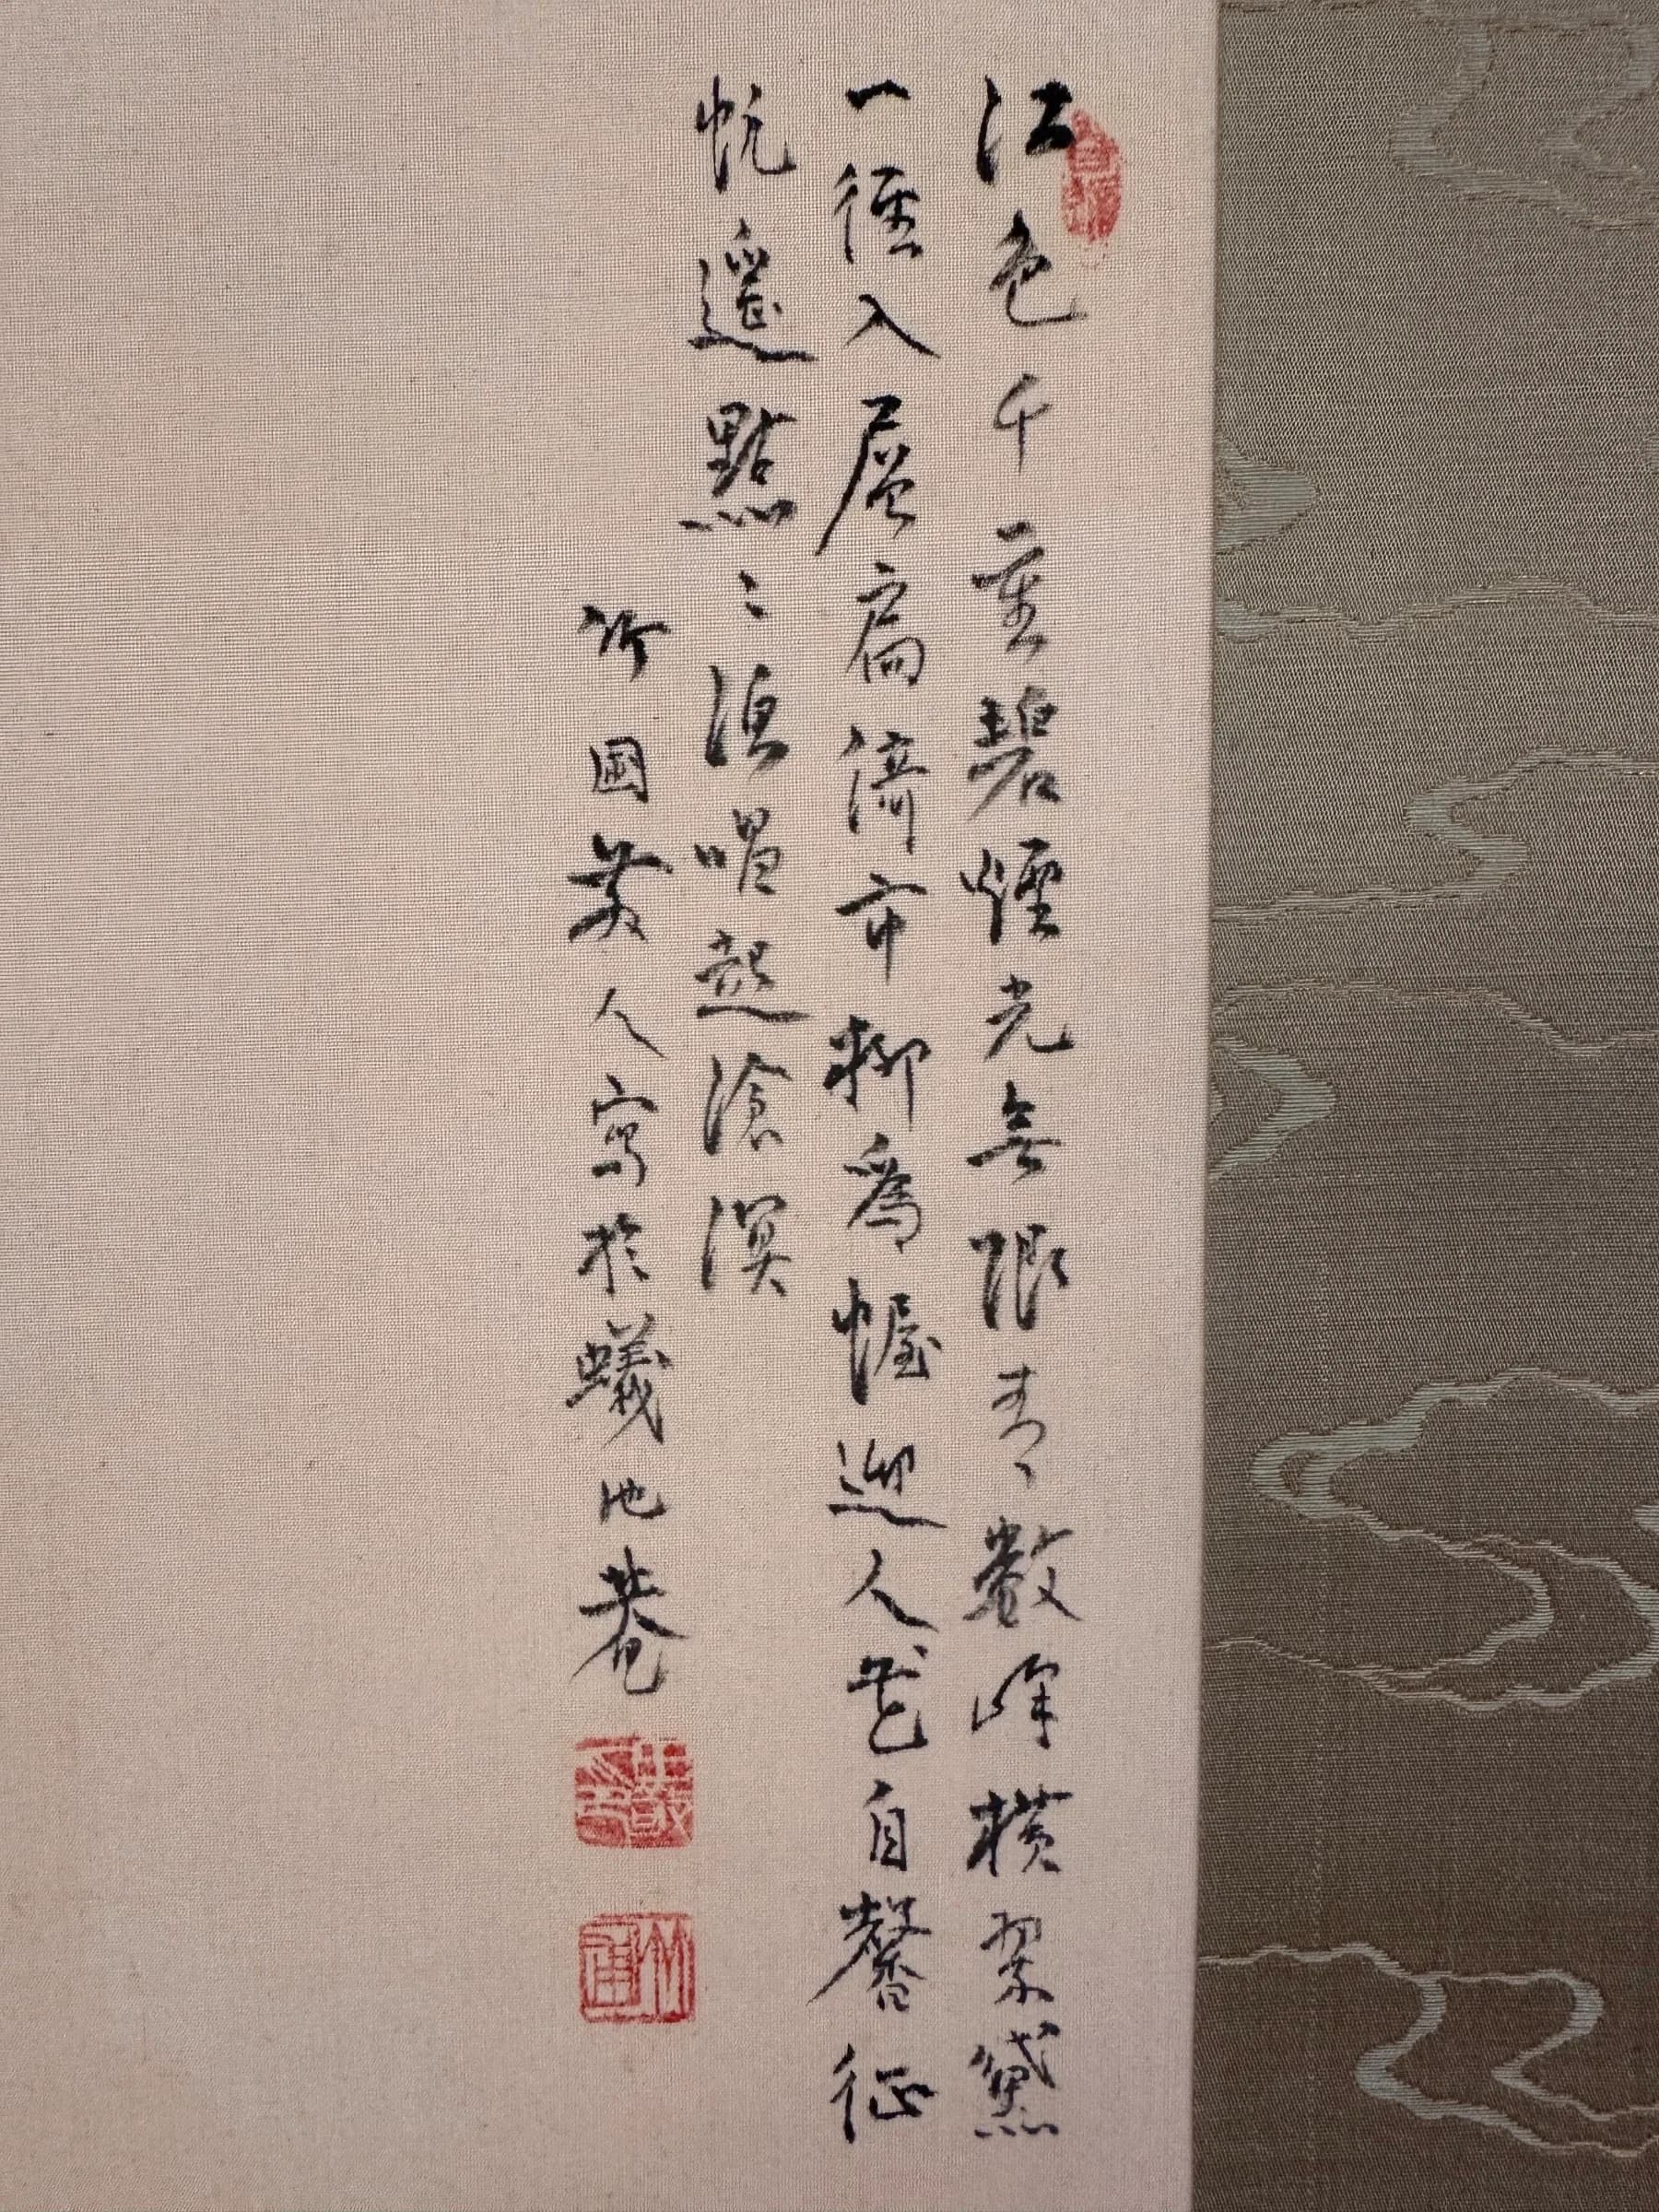 江色千重碧煙光無限青數峰橫翠黛
一徑入層扃市柳為幄迎人花自馨征
帆遙點〻漁唱起滄溟
竹圃人寫於蟻池菴